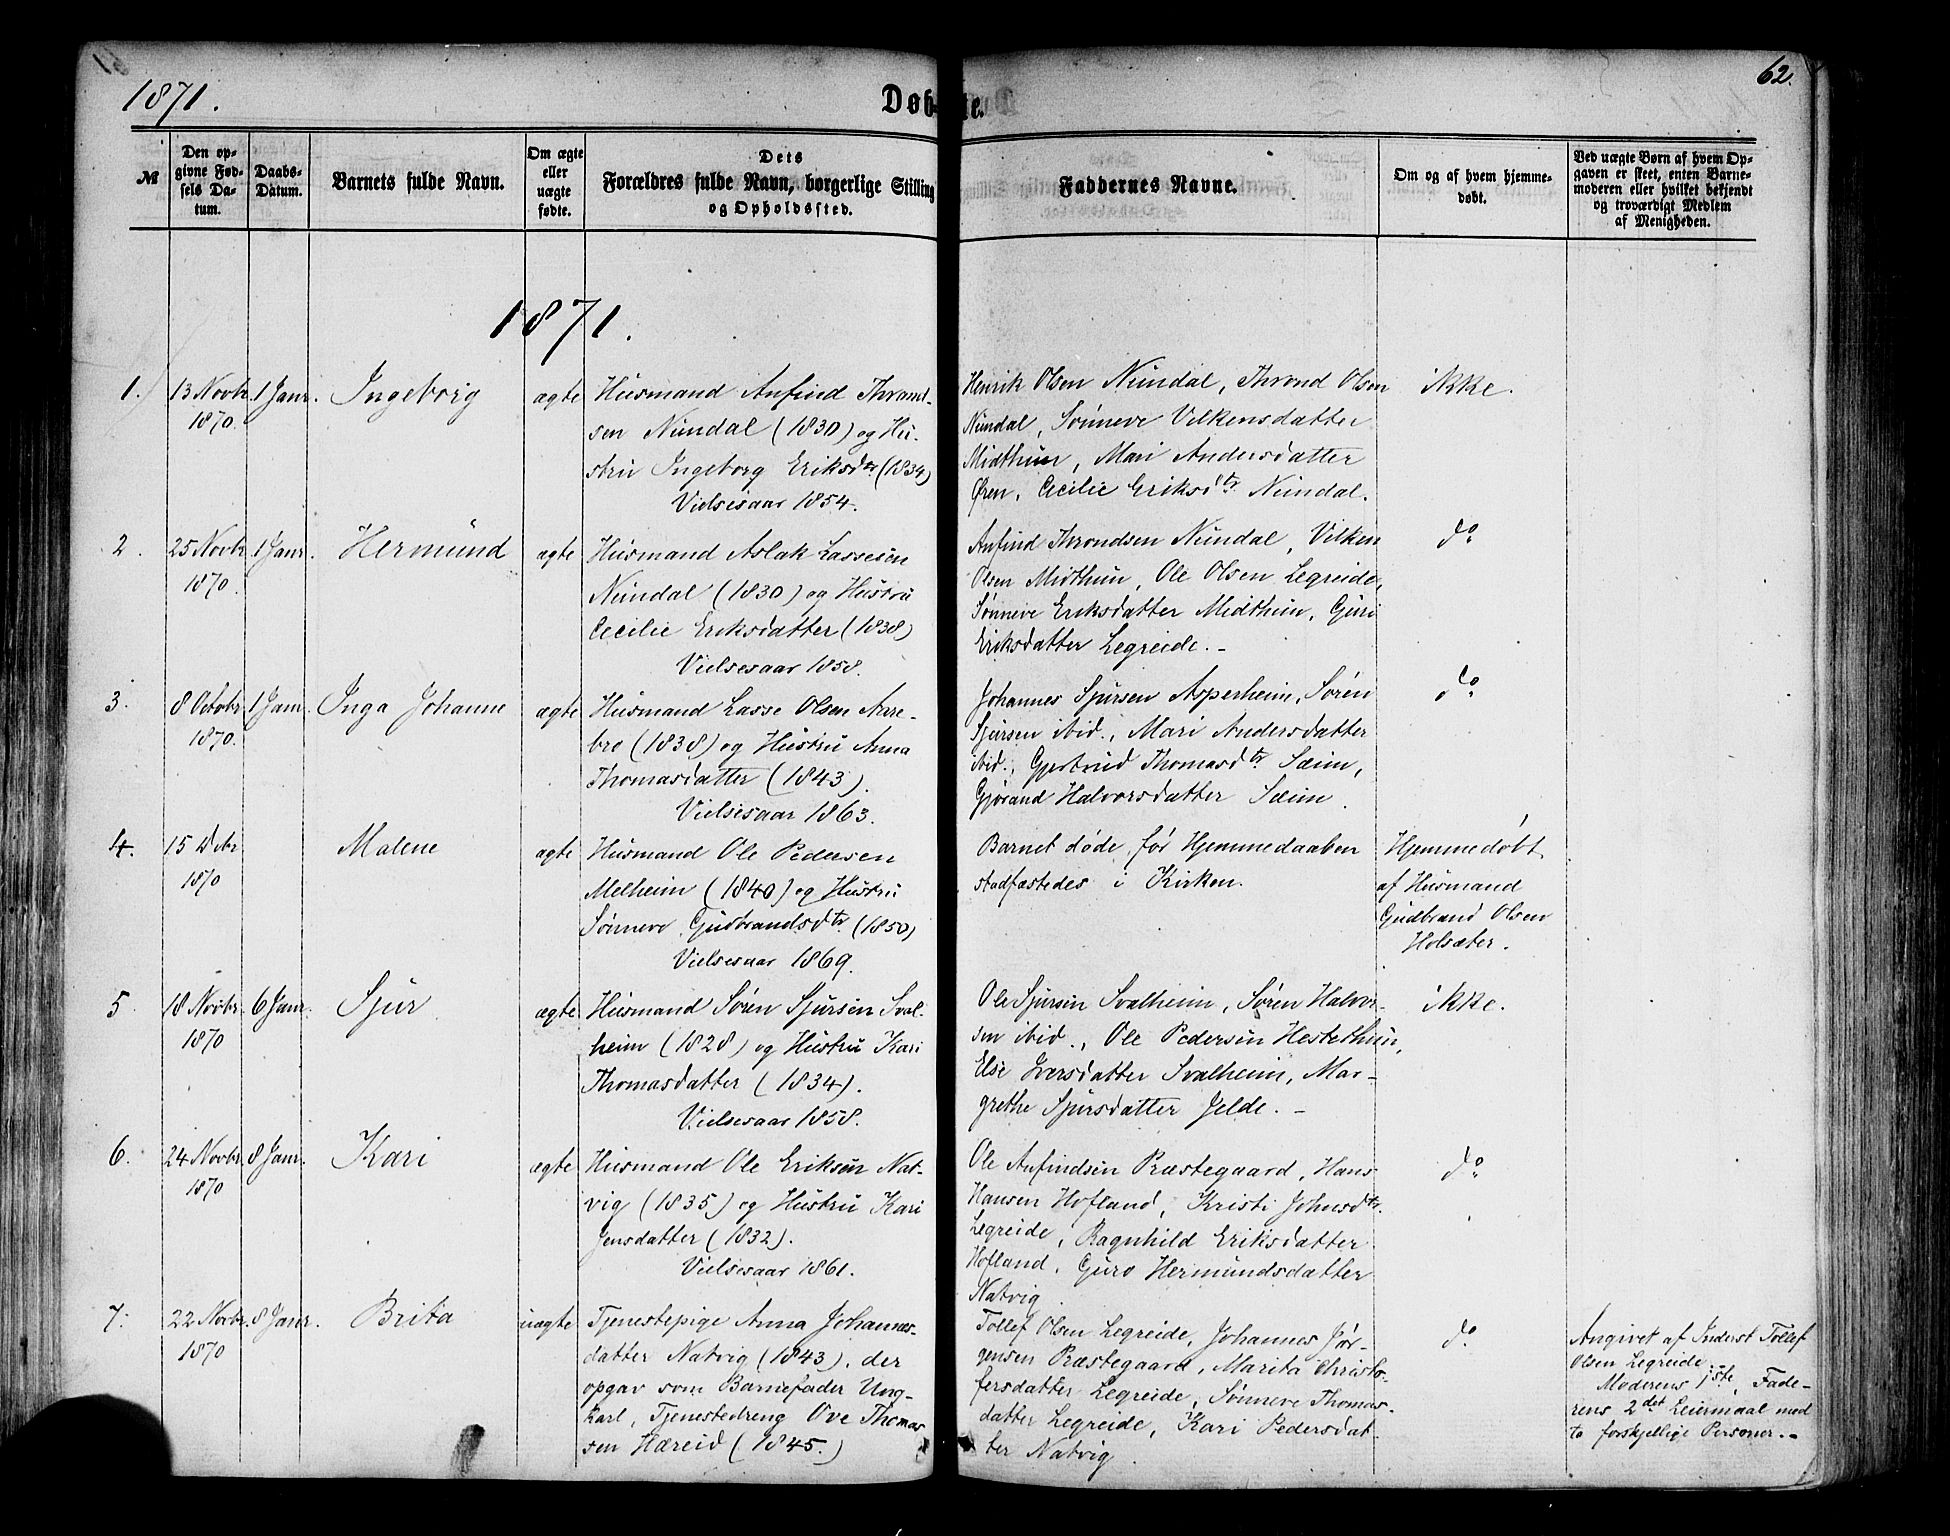 1871.
Døb-
te.
62.
№
Den op-
givne Fød-
sels Da-
tum.
Daabs-
Datum.
Barnets fulde Navn.
Om ægte
eller
uægte
fødte.
Dets
Forældres fulde Navn, borgerlige Stilling
og Opholdssted.
Faddernes Navne.
Om og af hvem hjemme-
døbt.
Ved uægte Børn af hvem Op-
gaven er skeet, enten Barne-
moderen eller hvilket bekjendt
og troværdigt Medlem
af Menigheden.
1871.
1.
13 Novbr
1870.
1 Janr.
Ingeborg
ægte
Husmand Anfind Thrond-
sen Nundal (1830) og Hu-
stru Ingeborg Eriksdtr (1834)
Vielsesaar 1854.
Henrik Olsen Nundal, Thrond Olsen
Nundal, Sönneve Vilkensdatter
Midthun, Mari Andersdatter
Øren, Cecilie Eriksdtr Nundal.
ikke.
2.
25 Novbr
1870.
1 Janr.
Hermund
ægte
Husmand Aslak Lassesen
Nundal (1830) og Hustru
Cecilie Eriksdatter (1838)
Vielsesaar 1858.
Anfind Throndsen Nundal, Vilken
Olsen Midthun, Ole Olsen Legreide,
Sönneve Eriksdatter Midthun, Guri
Eriksdatter Legreide. -
do
3.
8 Octobr
1870.
1 Janr.
Inga Johanne
ægte
Husmand Lasse Olsen Aare-
bro (1838) og Hustru Anna
Thomasdatter (1843).
Vielsesaar 1863.
Johannes Sjursen Asperheim, Sören
Sjursen ibid., Mari Andersdatter
ibid., Gjertrud Thomasdtr Sæim,
Gjörand Halvorsdatter Sæim.
do
4.
15 Dbr
1870
Malene
ægte
Husmand Ole Pedersen
Melheim (1840) og Hustru
Sönneve Gudbrandsdtr (1850)
Vielsesaar 1869.
Barnet døde før Hjemmedaaben
stadfæstedes i Kirken.
Hjemmedøbt
af Husmand
Gudbrand Olsen
Holsæter.
5.
18 Novbr.
1870
6 Janr.
Sjur
ægte
Husmand Sören Sjursen Sval-
heim (1828) og Hustru Kari
Thomasdatter (1834).
Vielsesaar 1858.
Ole Sjursen Svalheim, Sören Halvor-
sen ibid., Ole Pedersen Hestethun,
Else Iversdatter Svalheim, Mar-
grethe Sjursdatter Jelde. -
ikke.
6.
24 Novbr.
1870
8 Janr.
Kari
ægte
Husmand Ole Eriksen Nat-
vig (1835) og Hustru Kari
Jensdatter (1832).
Vielsesaar 1861.
Ole Anfindsen Præstegaard, Hans
Hansen Hofland, Kristi Johnsdtr.
Legreide, Ragnhild Eriksdatter
Hofland, Guro Hermundsdatter
Natvig.
do
7.
22 Novbr.
1870
8 Janr.
Brita
uægte
Tjenestepige Anna Johannes-
datter Natvig (1843), der
opgav som Barnefader Ung-
karl, Tjenestedreng Ove Thomas-
sen Hæreid (1845.)
Tollef Olsen Legreide, Johannes Jör-
gensen Præstegaard, Marita Christo-
fersdatter Legreide, Sönneve Thomas-
datter Legreide, Kari Pedersdat-
ter Natvig.
do
Angivet af Inderst Tollef
Olsen Legreide.
Moderens 1ste, Fade-
rens 2det Leiermaal med
to forskjellige Personer. -